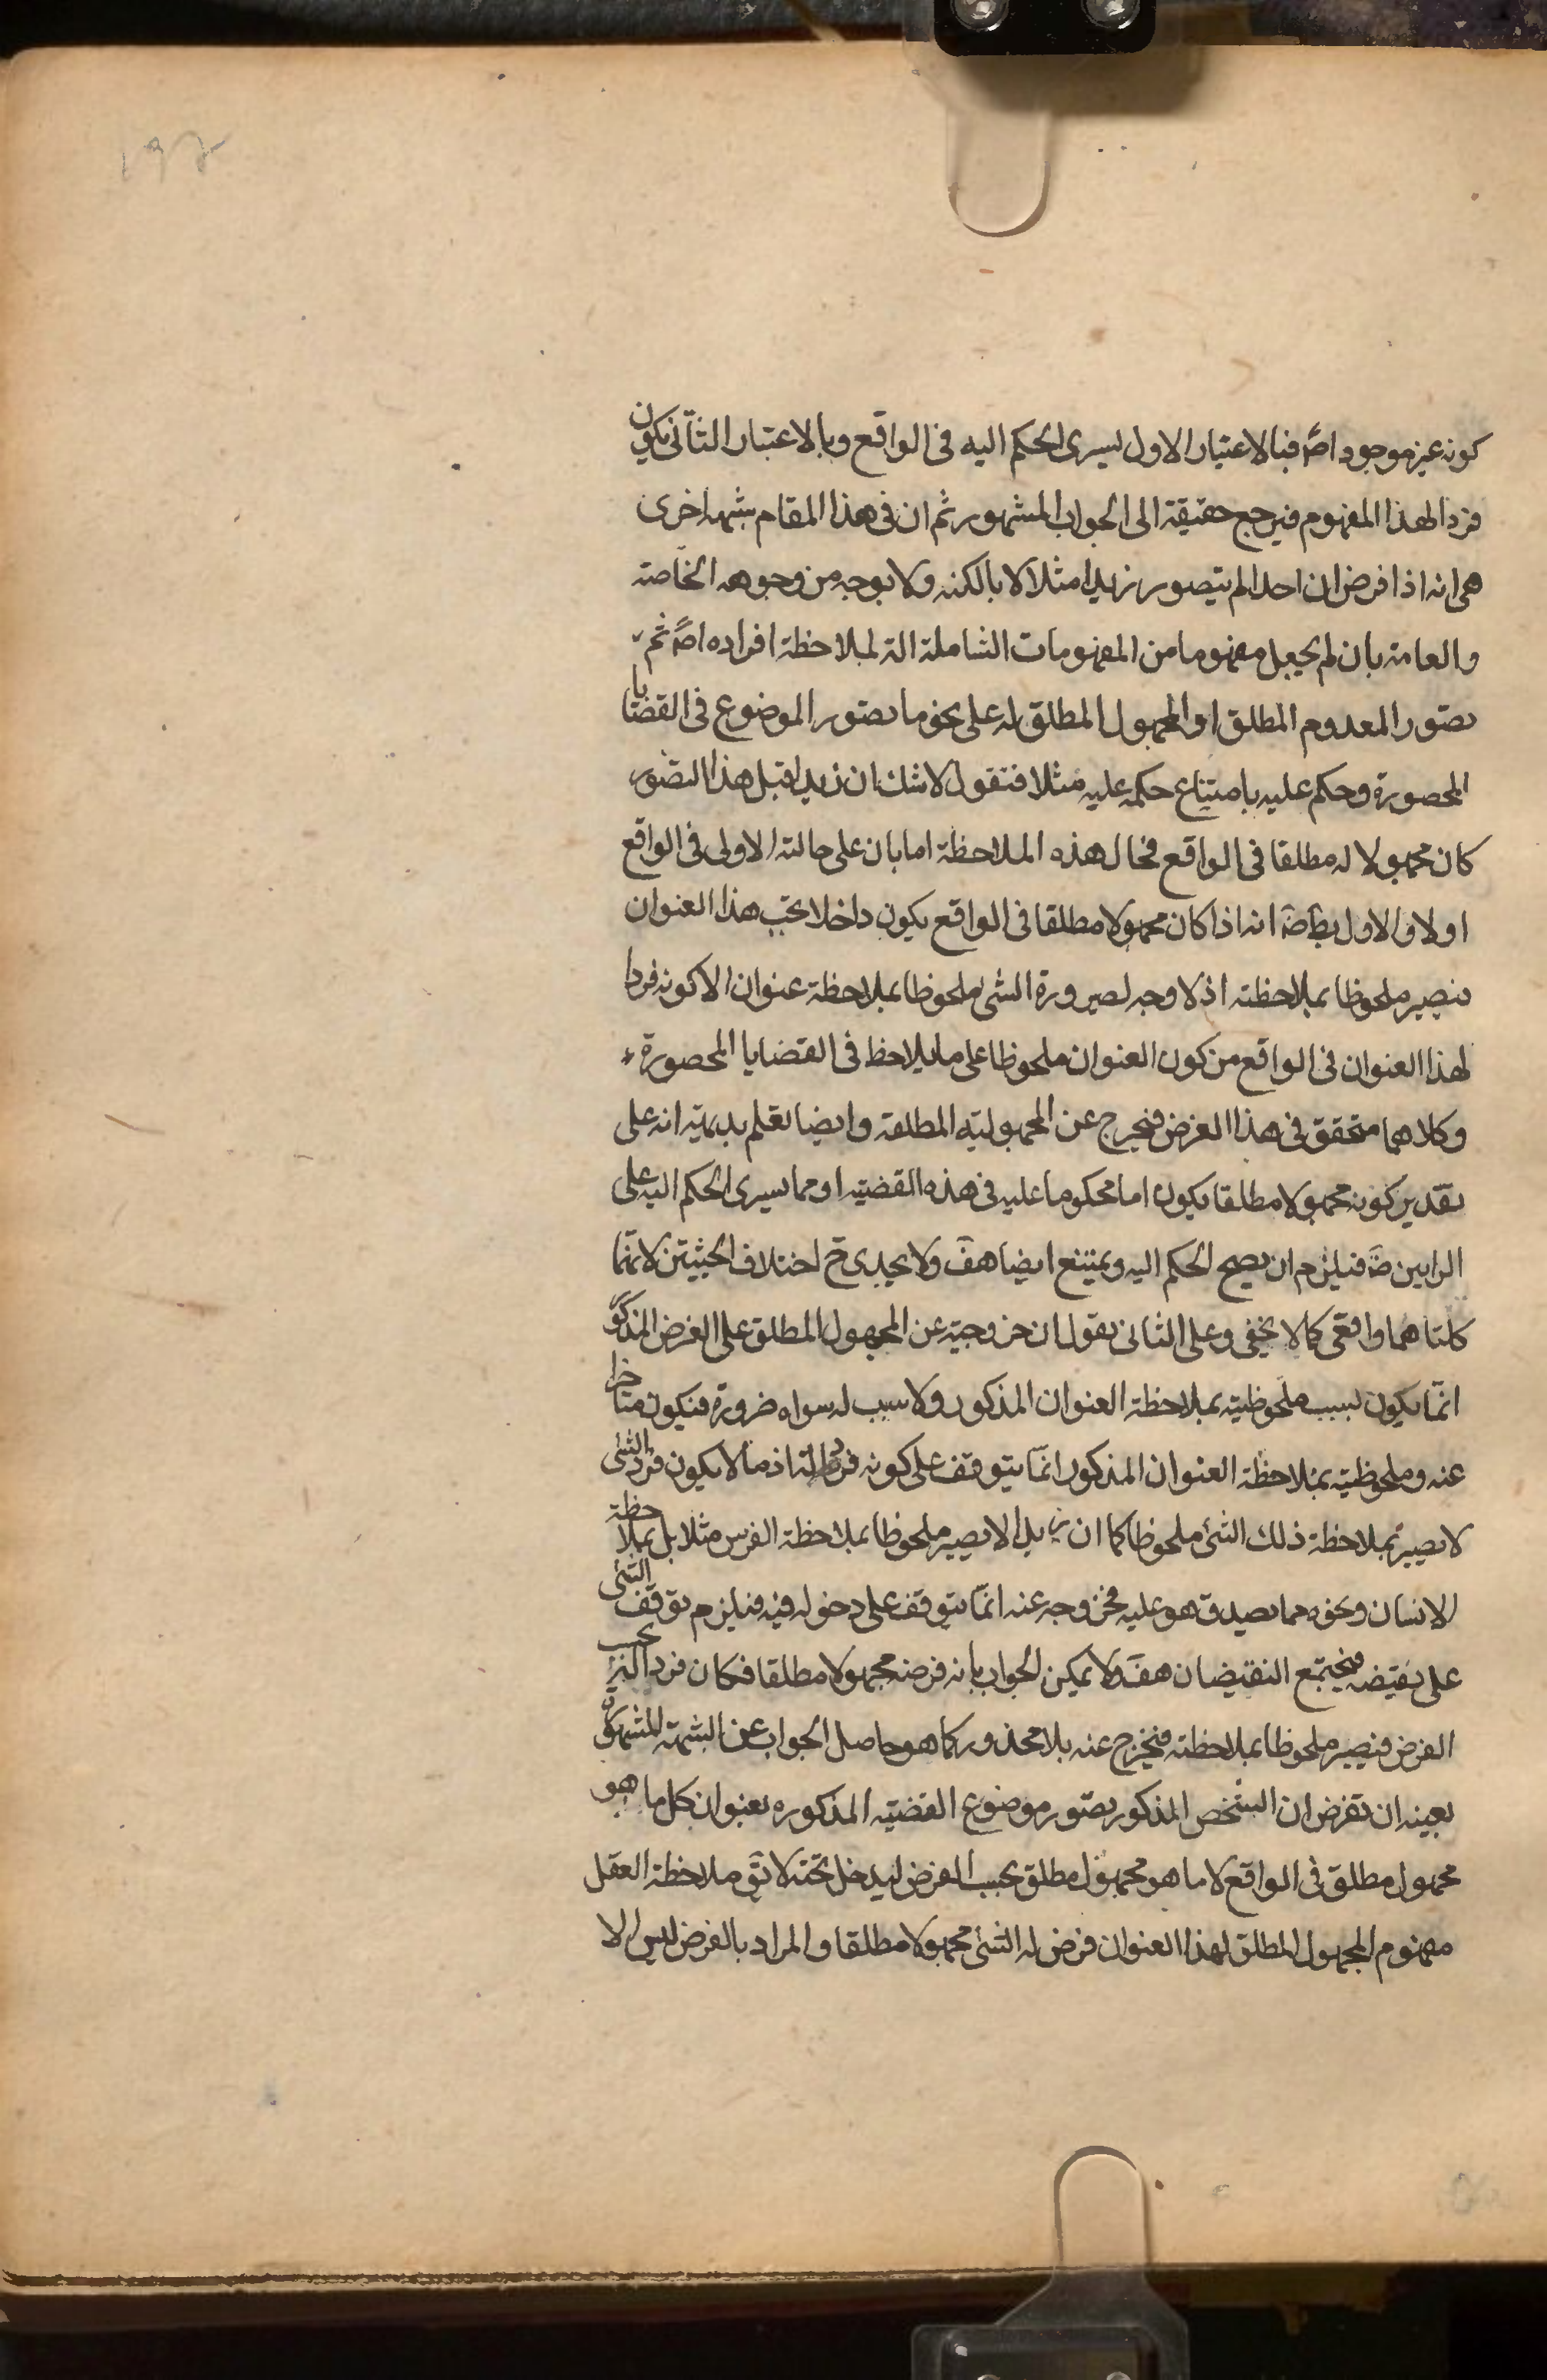 ١٩٢
كونه غير موجود اصً فبالاعتبار الاول يسرى الحكم اليه فى الواقع وبالاعتبار الثانى يكون
فردا لهذا المفهوم فيرجع حقيقة الى الجواب المشهور ثم ان فى هذا المقام شبهة اخرى
هى انه اذا فرض ان احدا لم يتصور زيدا مثلا لا بالكنه ولا بوجه من وجوهه الخاصة
والعامة بان لم يجعل مفهوما من المفهومات الشاملة الة لملاحظة افراده اصً ثم
تصور المعدوم المطلق او المجهول المطلق له على نحو ما تصور الموضوع فى القضايا
المحصورة وحكم عليه بامتناع حكمه عليه مثلا فنقول لا شك ان زيدا قبل هذا التصور
كان مجهولا له مطلقا فى الواقع فحال هذه الملاحظة اما بان على حالته الاولى فى الواقع
اولا والاول بط ضَ انه اذا كان مجهولا مطلقا فى الواقع يكون داخلا تحت هذا العنوان
فيصير ملحوظا بملاحظته اذ لا وجه لصيرورة الشى ملحوظا بملاحظة عنوان الا كونه فردا
لهذا العنوان فى الواقع من كون العنوان ملحوظا على ما يلاحظ فى القضايا المحصورة
وكلاهما متحقق فى هذا الفرض فيخرج عن المجهولية المطلقة وايضا نعلم بديهة انه على
تقدير كونه مجهولا مطلقا يكون اما محكوما عليه فى هذه القضية او مما يسرى الحكم اليه على
الرايين ضَ فيلزم ان يصح الحكم اليه ويمتنع ايضا هفَ ولا يجدى حَ اختلاف الحيثيتين لانهما
كلتاهما واقعى كما لا يخفى وعلى الثانى نقول ان خروجيته عن المجهول المطلق على الفرض المذكور
انما يكون بسبب ملحوظيته بملاحظة العنوان المذكور ولا سبب له سواه ضرورة فيكون متاخرا
عنه وملحوظيته بملاحظة العنوان المذكور انما يتوقف على كونه فردا له اذ ما لا يكون فرد الشى
لا يصير بملاحظة ذلك الشئ ملحوظا كما ان زيدا لا يصير ملحوظا بملاحظة الفرس مثلا بل بملاحظة
الانسان ونحوه مما يصدق هو عليه فخروجه عنه انما يتوقف على دخوله فيه فيلزم توقف الشى
على نقيضه فيجتمع النقيضان هفَ ولا يمكن الجواب بانه فرضه مجهولا مطلقا فكان فردا له بحسب
الفرض فيصير ملحوظا بملاحظته فيخرج عنه بلا محذور كما هو حاصل الجواب عن الشبهة المشهورة
بعينه ان نفرض ان الشخص المذكور تصور موضوع القضية المذكوره بعنوان كل ما هو
مجهول مطلق فى الواقع لا ما هو مجهول مطلق بحسب الفرض ليدخل تحته لا يقَ ملاحظة العقل
مفهوم المجهول المطلق لهذا العنوان فرض له الشئ مجهولا مطلقا والمراد بالفرض ليس الا